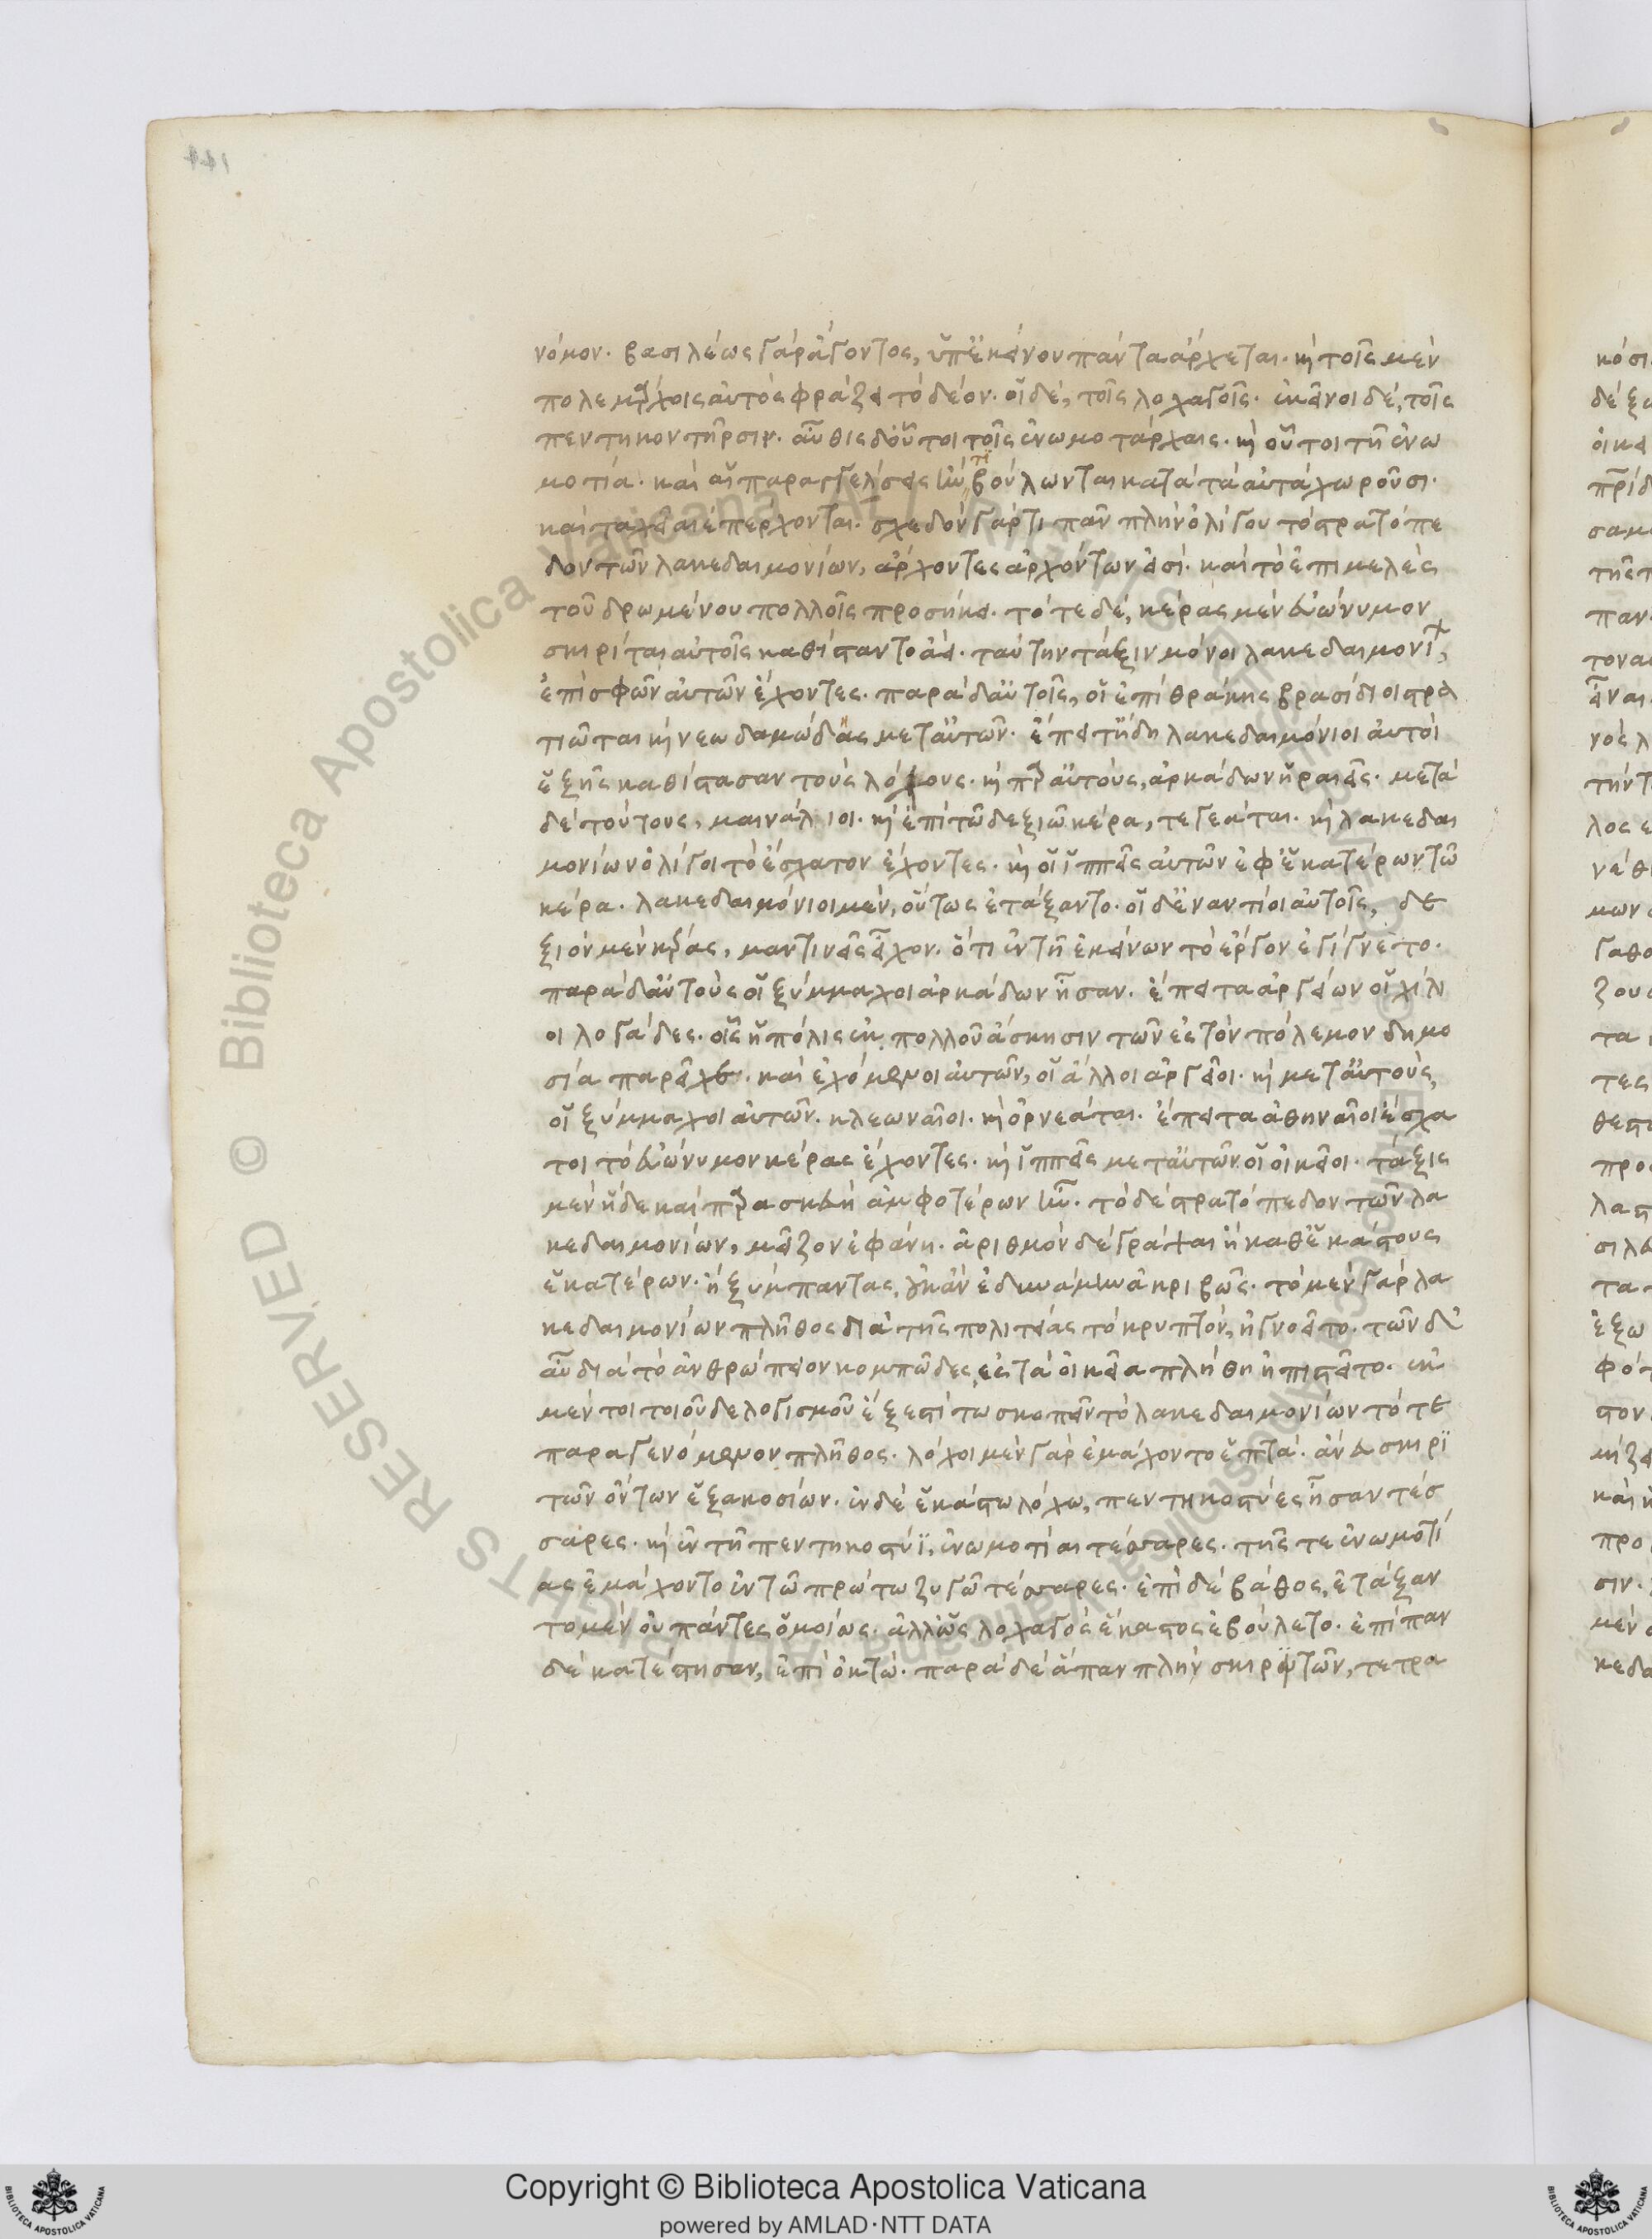 νόμον. βασιλέως γὰρ ἄγοντος, ὑπ' ἐκείνου πάντα ἄρχεται. καὶ τοῖς μὲν
πολεμάρχοις αὐτὸς φράζει τὸ δέον. οἱ δὲ, τοῖς λοχαγοῖς. ἐκεῖνοι δὲ, τοῖς
πεντηκοντῆρσιν. αὖθις δ' οὗτοι τοῖς ἐνωμοτάρχαις. καὶ οὗτοι τῆ ἐνω
μοτία. καὶ αἱ παραγγέλσεις ἤν τι βούλωνται κατὰ τὰ αὐτὰ χωροῦσι.
καὶ ταχεῖαι ἐπέρχονται. σχεδὸν γάρ τι πᾶν πλὴν ὀλίγου τὸ στρατόπε
δον τῶν λακεδαιμονίων, ἄρχοντες ἀρχόντων εἰσί. καὶ τὸ ἐπιμελὲς
τοῦ δρωμένου πολλοῖς προσήκει. τότε δὲ, κέρας μὲν εὐώνυμον
σκιρίται αὐτοῖς καθίσταντο ἀεί. ταύτην τάξιν μόνοι λακεδαιμονί
ἐπὶ σφῶν αὐτῶν ἔχοντες. παρὰ δ' αὐτοῖς, οἱ ἐπὶ θράκης βρασίδιοι στρα
τιῶται καὶ νεωδαμώδεις μετ' αὐτῶν. ἔπειτ' ἤδη λακεδαιμόνιοι αὐτοὶ
ἑξῆς καθίστασαν τοὺς λόχους. καὶ παρ' αὐτοὺς, ἀρκάδων ἡραιεῖς. μετὰ
δὲ τούτους, μαινάλιοι. καὶ ἐπὶ τῶ δεξιῶ κέρα, τεγεάται. καὶ λακεδαι
μονίων ὀλίγοι τὸ ἔσχατον ἔχοντες. καὶ οἱ ἱππεῖς αὐτῶν ἐφ' ἑκατέρω τῶ
κέρα. λακεδαιμόνιοι μὲν, οὕτως ἐτάξαντο. οἱ δ' ἐναντίοι αὐτοῖς, δε
ξιὸν μὲν κέρας, μαντινεῖς εἶχον. ὅτι ἐν τῆ ἐκείνων τὸ ἔργον ἐγίγνετο.
παρὰ δ' αὐτοὺς οἱ ξύμμαχοι ἀρκάδων ἦσαν. ἔπειτα ἀργείων οἱ χίλι
οι λογάδες. οἷς ἡ πόλις ἐκ πολλοῦ ἄσκησιν τῶν ἐς τὸν πόλεμον δημο
σία παρεῖχε. καὶ ἐχόμενοι αὐτῶν, οἱ ἄλλοι ἀργεῖοι. καὶ μετ' αὐτοὺς,
οἱ ξύμμαχοι αὐτῶν. κλεωναῖοι. καὶ ὀρνεάται. ἔπειτα ἀθηναῖοι ἔσχα
τοι τὸ εὐώνυμον κέρας ἔχοντες. καὶ ἱππεῖς μετ' αὐτῶν οἱ οἰκεῖοι. τάξις
μὲν ἥδε καὶ παρασκευὴ ἀμφοτέρων ἦν. τὸ δὲ στρατόπεδον τῶν λα
κεδαιμονίων, μεῖζον ἐφάνη. ἀριθμὸν δὲ γράψαι ἢ καθ' ἑκάστους
ἑκατέρων. ἢ ξύμπαντας, οὐκ ἂν ἐδυνάμην ἀκριβῶς. τὸ μὲν γὰρ λα
κεδαιμονίων πλῆθος διὰ τῆς πολιτείας τὸ κρυπτὸν, ἠγνοεῖτο. τῶν δ'
αὖ διὰ τὸ ἀνθρώπειον κομπῶδες ἐς τὰ οἰκεῖα πλήθη ἠπιστεῖτο. ἐκ
μέντοι τοιοῦδε λογισμοῦ ἔξεστί τω σκοπεῖν τὸ λακεδαιμονίων τότε
παραγενόμενον πλῆθος. λόχοι μὲν γὰρ ἐμάχοντο ἑπτὰ. ἄνευ σκιρι
τῶν ὄντων ἑξακοσίων. ἐν δὲ ἑκάστω λόχω, πεντηκοστύες ἦσαν τέσ
σαρες. καὶ ἐν τῆ πεντηκοστύϊ, ἐνωμοτίαι τέσσαρες. τῆς τε ἐνωμοτί
ας ἐμάχοντο ἐν τῶ πρώτω ζυγῶ τέσσαρες. ἐπὶ δὲ βάθος, ἐτάξαν
το μὲν οὐ πάντες ὁμοίως. ἀλλ' ὡς λοχαγὸς ἕκαστος ἐβούλετο. ἐπίπαν
δὲ κατέστησαν, ἐπὶ ὀκτώ. παρὰ δὲ ἅπαν πλὴν σκιριτῶν, τετρα
Copyright © Biblioteca Apostolica Vaticana
powered by AMLAD·NTT DATA